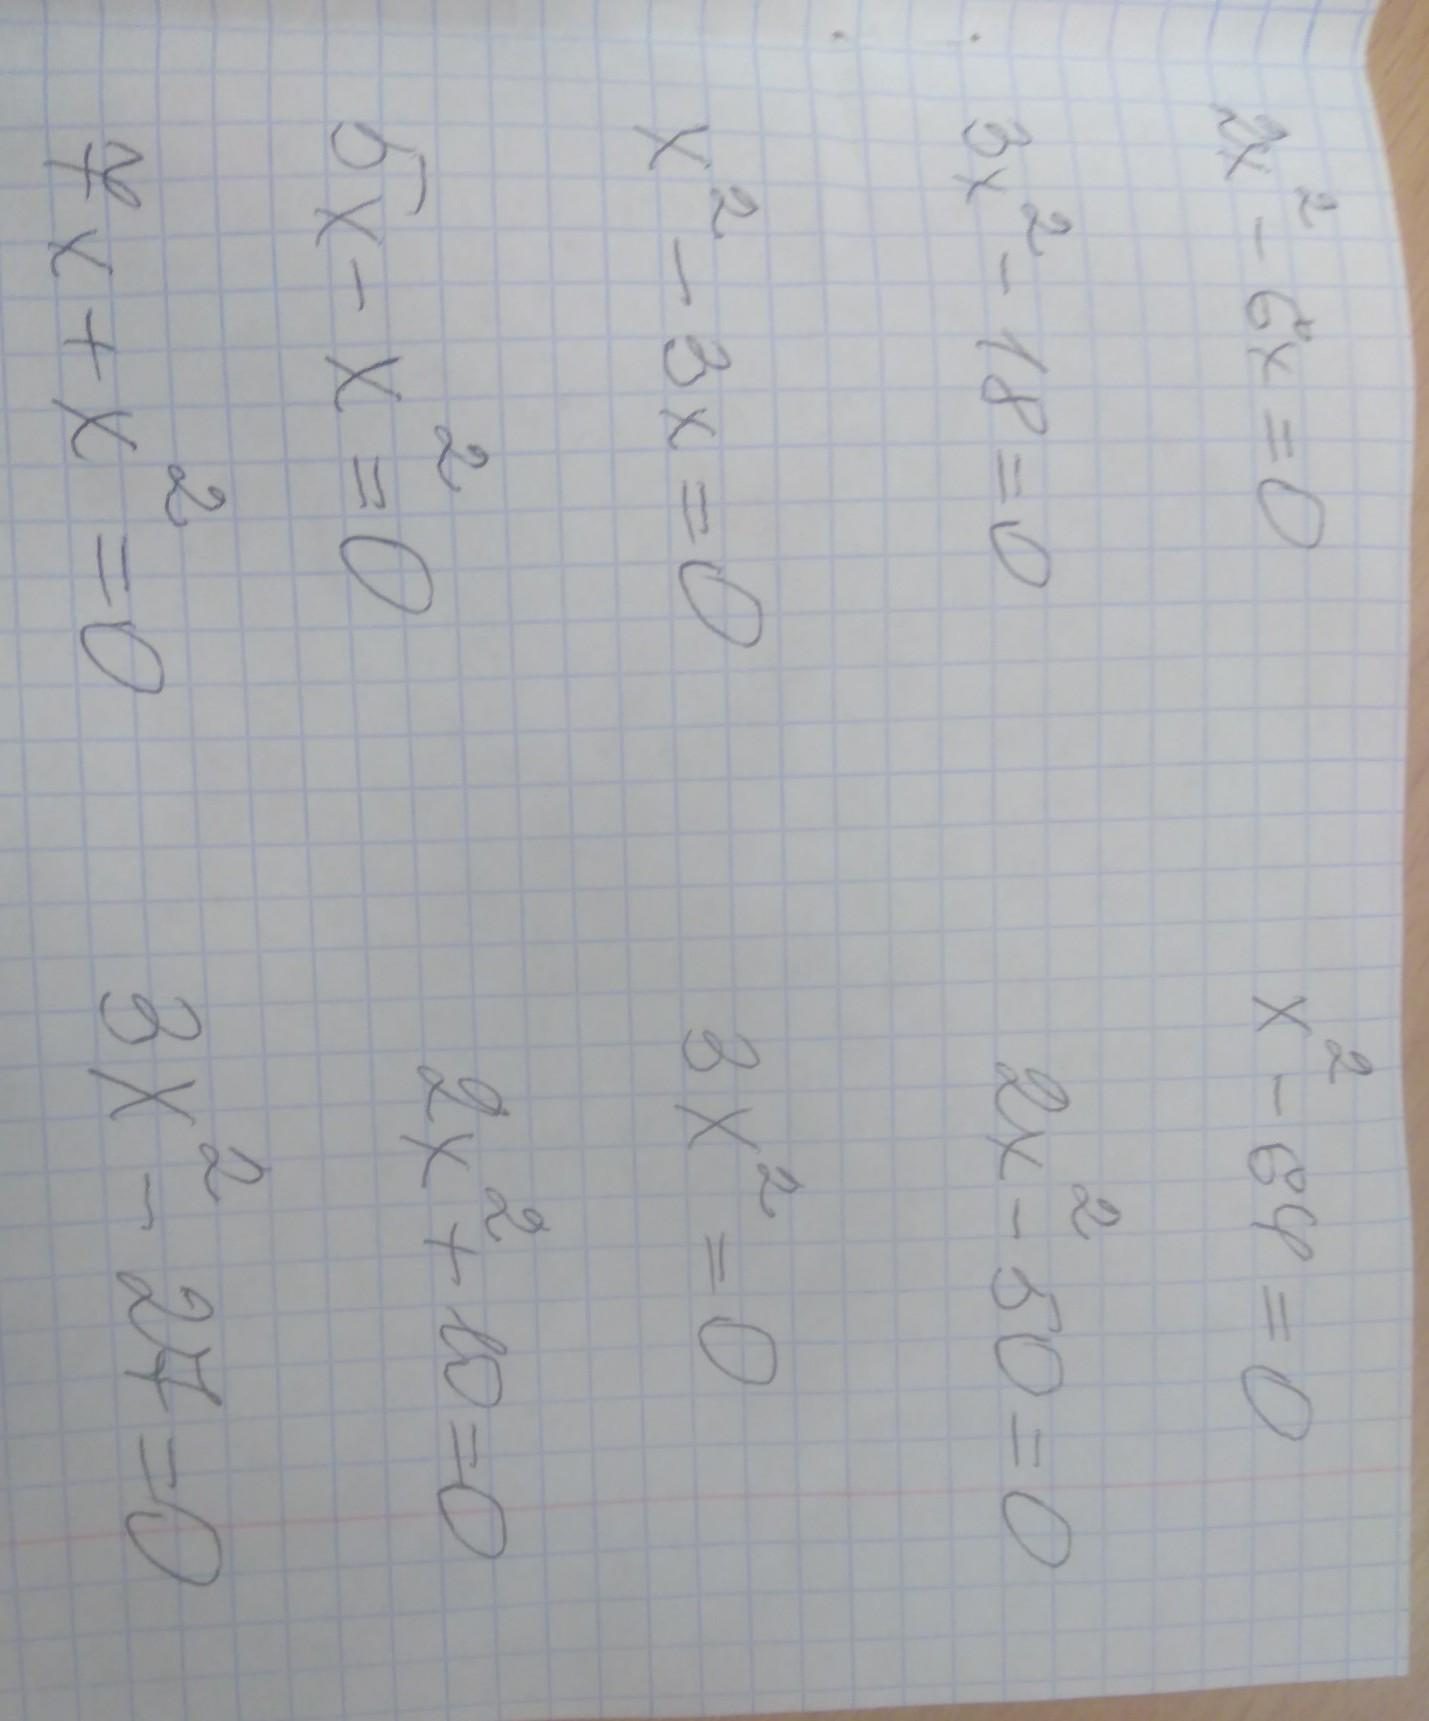 2x² - 6x = 0
3x² - 18 = 0
x² - 3x = 0
5x - x² = 0
7x + x² = 0
x² - 64 = 0
2x² - 50 = 0
3x² = 0
2x² + 10 = 0
3x² - 27 = 0